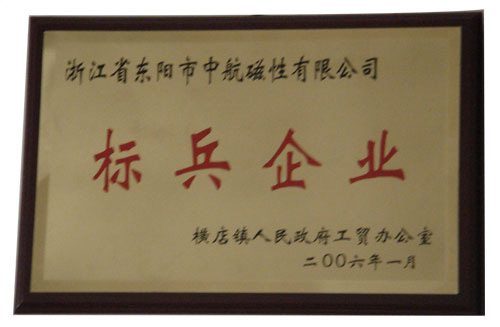 浙江省东阳市中航磁性有限公司
标兵企业
横店镇人民政府工贸办公室
二〇〇六年一月